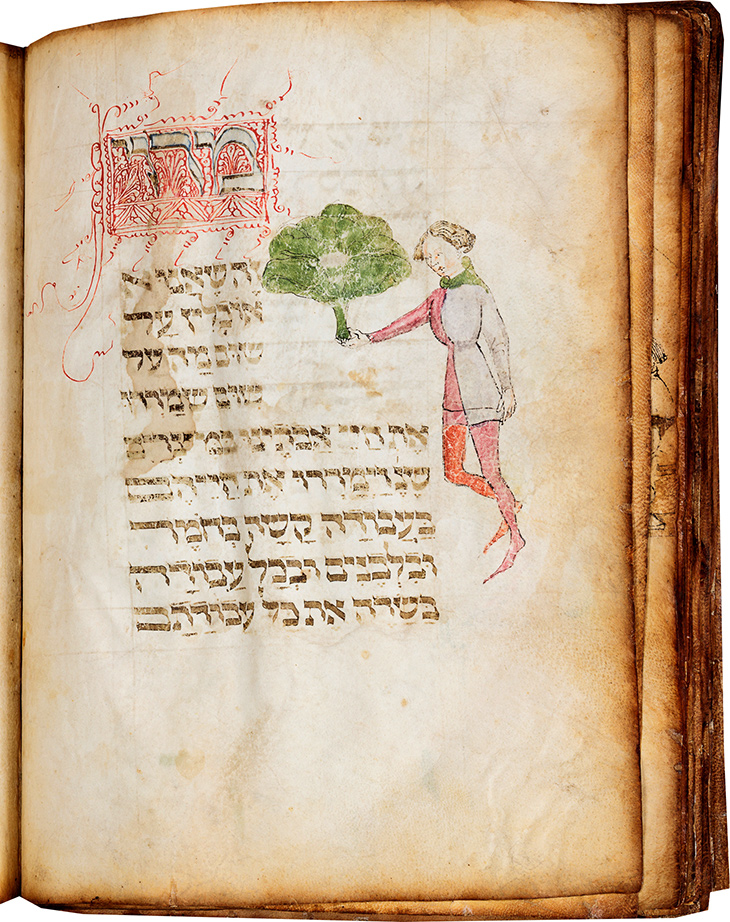 מרור
זה שאנו א
אוכלין על
שום מה על
שום שמררו
את חיי אבותינו במצרים
שנ' וימררו את חייהם
בעבודה קשה בחומר
ובלבנים ובכל עבודה
בשדה את כל עבודתם